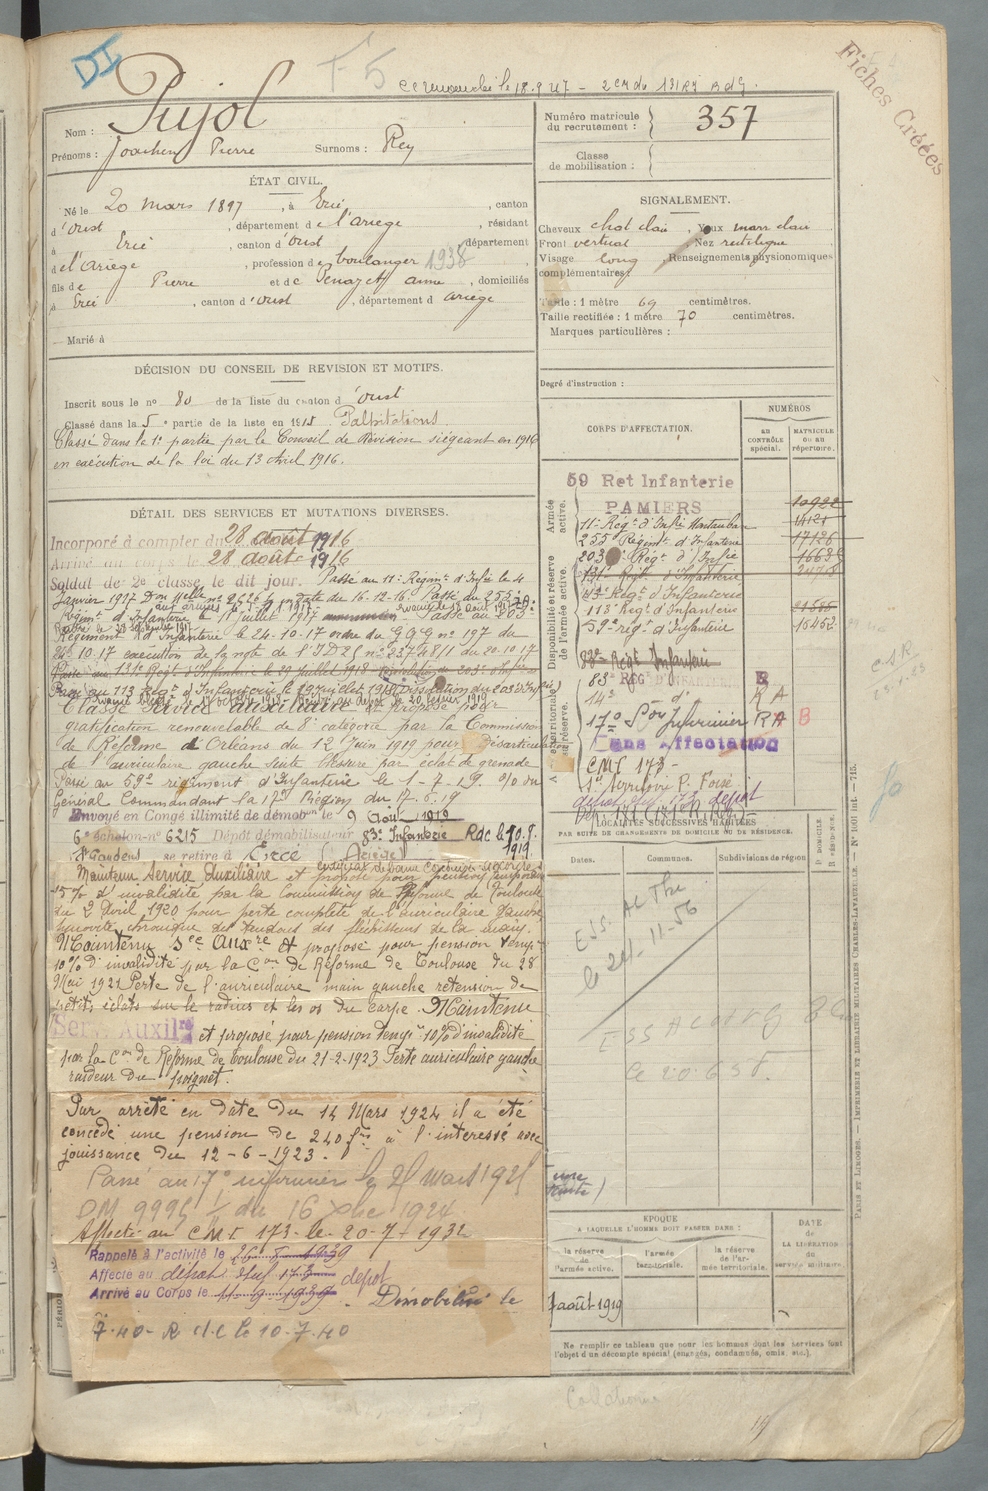 DI
F5
le 18.9.47 - 2 CM du 131 RI RdG.
Fiches Créées
Nom : Pujol
Prénoms : Joachim Pierre Surnoms : Rey
Numéro matricule du recrutement : 357
Classe de mobilisation :
ÉTAT CIVIL.
Né le 20 mars 1897, à Ercé, canton
d'Oust, département de l'Ariège, résidant
à Ercé, canton d'Oust, département
de l'Ariège, profession de boulanger 1938
fils de Pierre et de anne, domiciliés
à Ercé, canton d'Oust, département d Ariège
Marié à
SIGNALEMENT.
Cheveux chat clair, Yeux marr clair
Front vertical, Nez rectiligne
Visage long, Renseignements physionomiques
complémentaires :
Taille : 1 mètre 69 centimètres.
Taille rectifiée : 1 mètre 70 centimètres.
Marques particulières :
Degré d'instruction :
DÉCISION DU CONSEIL DE REVISION ET MOTIFS.
Inscrit sous le n° 80 de la liste du canton d'Oust
Classé dans la 5e partie de la liste en 1915 Palpitations.
Classé dans la 1e partie par le Conseil de Révision siégeant en 1916
en exécution de la loi du 13 Avril 1916.
DÉTAIL DES SERVICES ET MUTATIONS DIVERSES.
Incorporé à compter du 28 août 1916
Arrivé au corps le 28 août 1916
Soldat de 2e classe le dit jour. Passé au 11e Régimt d'Infie le 4
Janvier 1917 Dm Melle n° 2626 en date du 16.12.16. Passé au 255e
Régimt d'Infanterie le 11 juillet 1917 Passé au 203e
Régiment d'Infanterie le 24.10.17 ordre du G.Q.G n° 197 du
24.10.17 exécution de la note de l'I D 2 n° 23748/1 du 20.10.17
Passé au 131e Régt d'Infanterie le 29 juillet 1918 203e d'Infie
Passé au 113 Régt d'Infanterie le 19 juillet 1918 Dissolution du 203e d'Infie
Classé Service Auxiliaire et proposé pour
gratification renouvelable de 8e catégorie par la Commission
de Réforme d'Orléans du 12 Juin 1919 pour Désarticulation
de l'auriculaire gauche suite blessure par éclat de grenade
Passé au 59e régiment d'Infanterie le 1-7-19. O/ du
Général Commandant la 17e Région du 17.6.19
Envoyé en Congé illimité de démobon le 9 Août 1919
6e échelon n° 6215 Dépôt démobilisateur 83e Infanterie Rdc le 10.9.1919
St Gaudens se retire à Ercé (Ariège)
Maintenu Service Auxiliaire et proposé pour pension temporaire
15% d'invalidité par la Commission de Réforme de Toulouse
du 2 Avril 1920 pour perte complète de l'auriculaire gauche,
synovite chronique des tendons des fléchisseurs de la main.
Maintenu See Auxre et proposé pour pension temp
10% d'invalidité par la Con de Réforme de Toulouse du 28
Mai 1921 Perte de l'auriculaire main gauche rétension de
petits éclats sur le radius et les os du carpe. Maintenu
Serv. Auxilre et proposé pour pension tempre 10% d'invalidité
par la Con de Réforme de Toulouse du 21-2-1923 Perte auriculaire gauche
raideur du poignet.
Par arrêté en date du 14 Mars 1924 il a été
concédé une pension de 240 frs à l'intéressé avec
jouissance du 12-6-1923.
Passé au 17e infirmier le 25 mars 1925
DM 9995 1/ du 16 Xbre 1924.
Affecté au C.M.I. 173 le 20-7-1932
Rappelé à l'activité le
Affecté au dépôt
Arrivé au Corps le dépôt
Démobilisé le
7.40 - R d C le 10.7.40
CORPS D'AFFECTATION.
NUMÉROS
AU CONTRÔLE spécial.
MATRICULE OU AU répertoire.
Armée active.
Disponibilité et réserve de l'armée active.
Armée territoriale et sa réserve.
59 Ret Infanterie
PAMIERS 10922
11e Régt d'Infie Montauban 14121
255 Régimt d'Infanterie 17126
203e Régt d'Infie
131e Régt d'Infanterie
113e Régt d'Infanterie
59e régt d'Infanterie 15452
83e Régt Infanterie
83e RÉGt D'INFANTERIE R
14e d° R A
17e Son Infirmiers RA B
Sans Affectation
CMI 173 -
LOCALITÉS SUCCESSIVES HABITÉES
PAR SUITE DE CHANGEMENTS DE DOMICILE OU DE RÉSIDENCE.
Dates. Communes. Subdivisions de région
D. DOMICILE
R. RÉSIDENCE.
le 24-11-56
le 20.6.58.
ÉPOQUE
A LAQUELLE L'HOMME DOIT PASSER DANS :
la réserve de l'armée active.
l'armée territoriale.
la réserve de l'armée territoriale.
DATE DE LA LIBÉRATION du service militaire.
7 août 1919
Ne remplir ce tableau que pour les hommes dont les services font
l'objet d'un décompte spécial (engagés, condamnés, omis, etc.).
PARIS ET LIMOGES. — IMPRIMERIE ET LIBRAIRIE MILITAIRES CHARLES-LAVAUZELLE. — N° 1001 int. — 715.